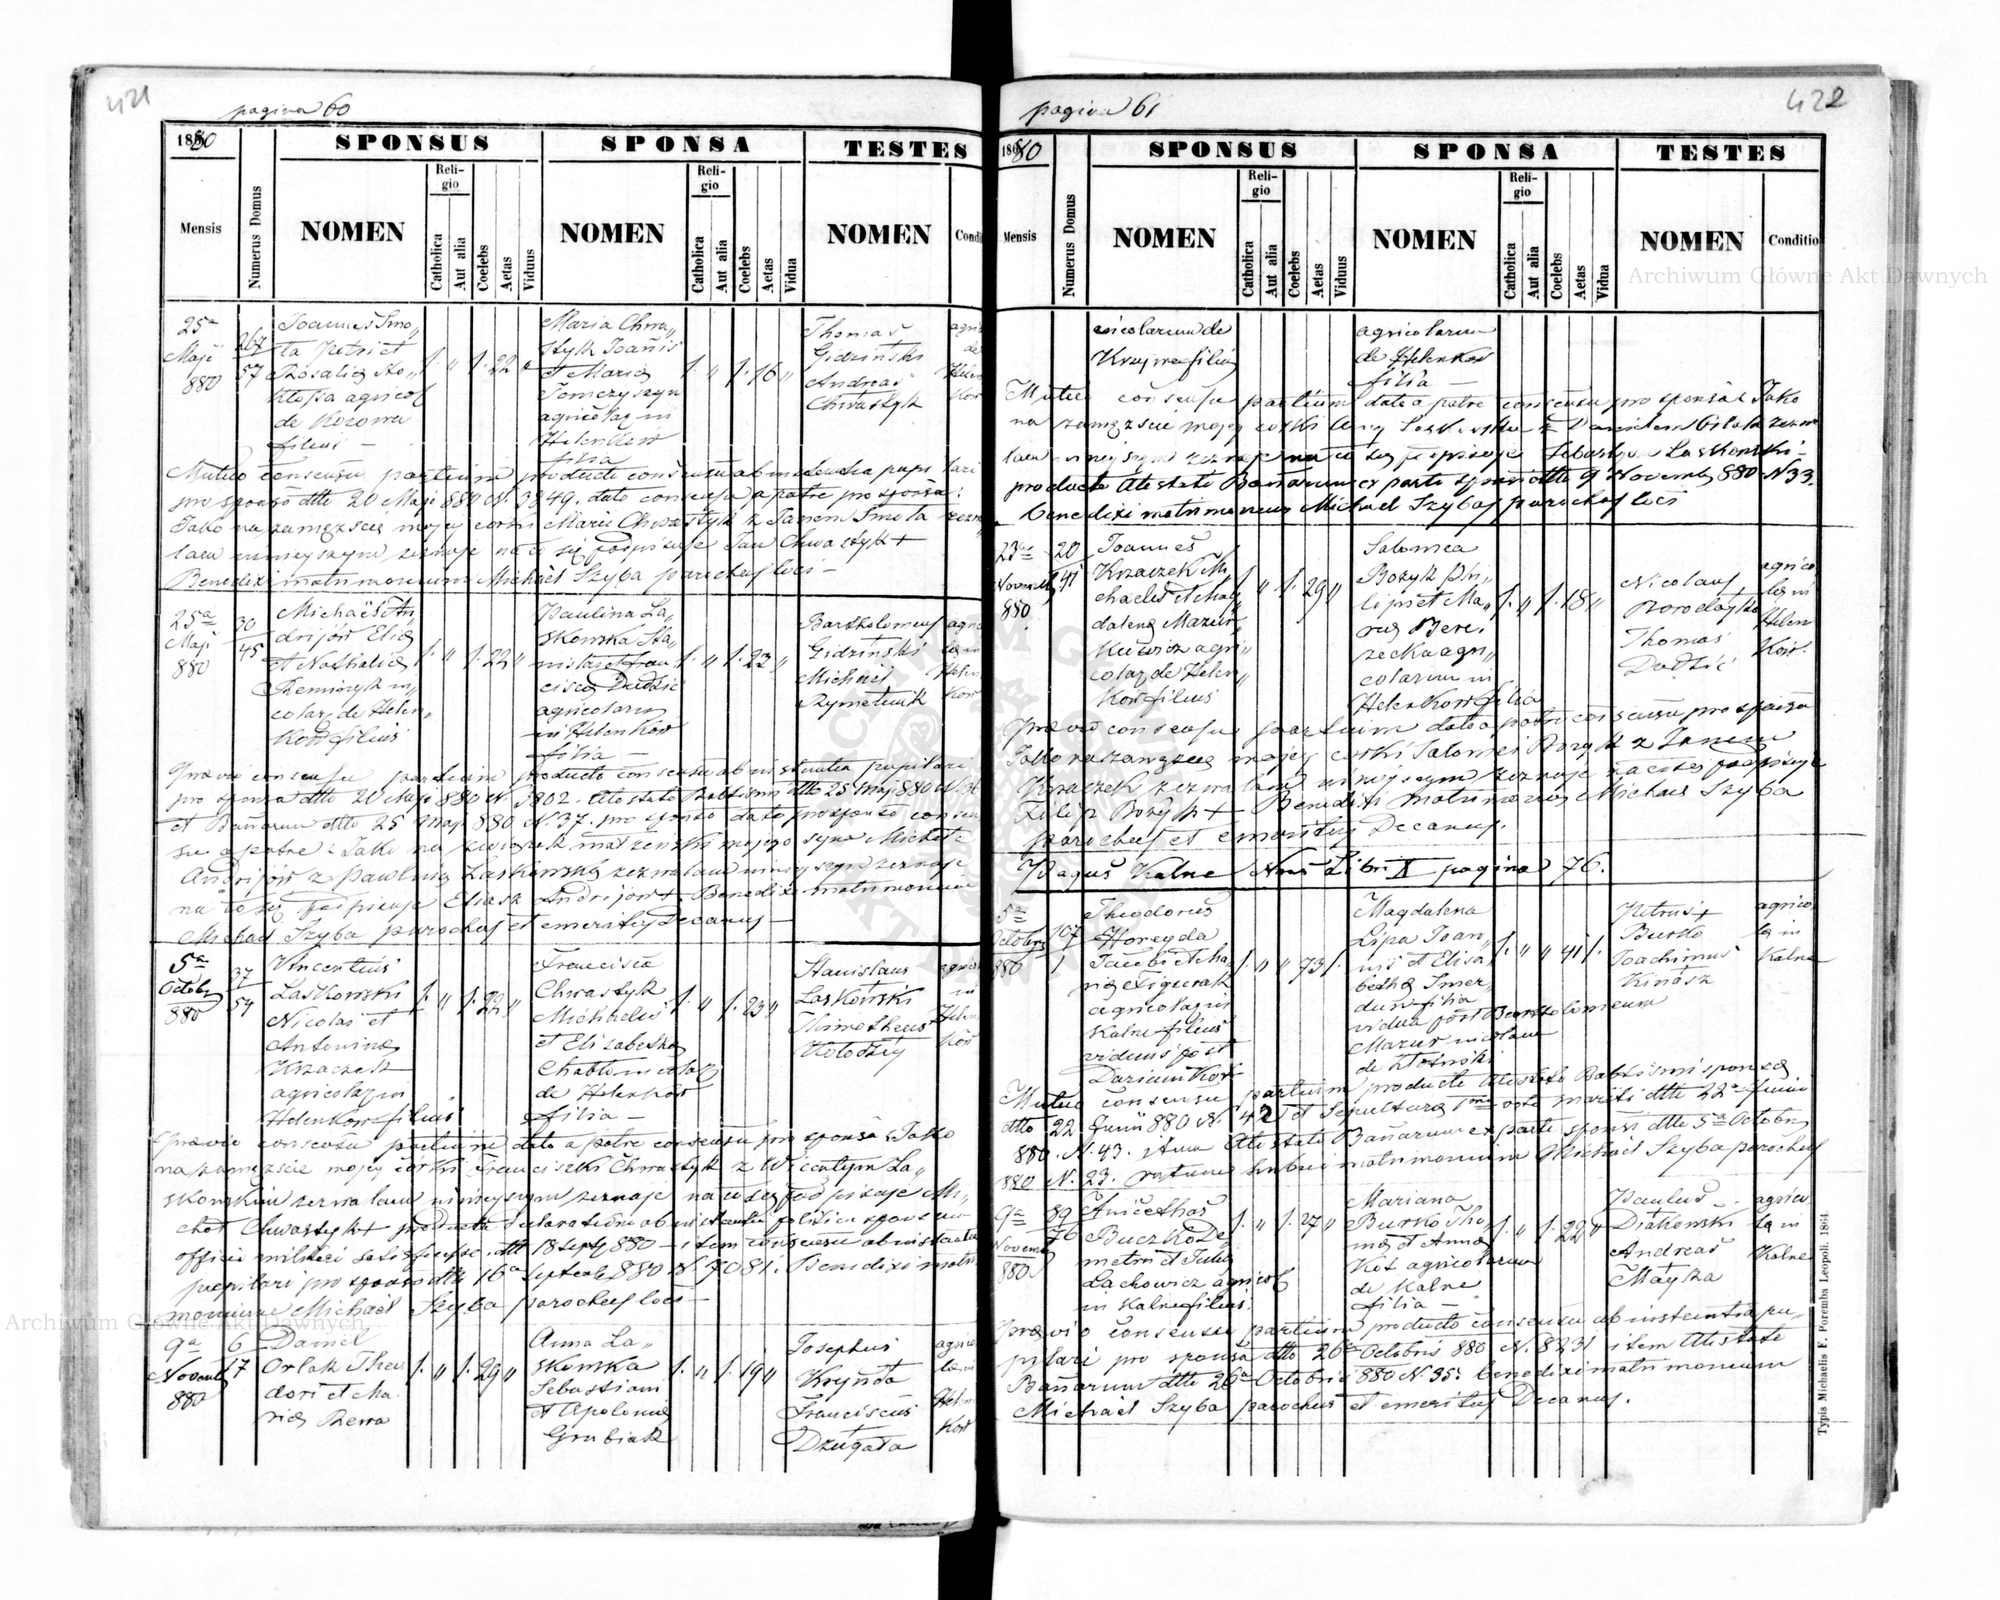 421
pagina 60
1880
SPONSUS
SPONSA
TESTES
Mensis
Numerus Domus
NOMEN
Religio
Catholica
Aut alia
Coelebs
Aetas
Viduus
NOMEN
Religio
Catholica
Aut alia
Coelebs
Aetas
Vidua
NOMEN
Condi
25a
Maji
880
267
57
Joannes Smo„
ła Petri et
Rosalia
agricol
de Kozowa
filius —
1. „ 1. 22 „
Maria Chwa„
styk Joannis
et Maria
Tomczyszyn
agricolar in
Helenków
filia
1. „ 1. 16 „
Thomas
Gidziński
Andreas
Chwastyk
Mutuo consensu partium producto consensu ab
pro sponso dtto 20 Maji 880 N. 3849. dato consensu a patre pro sponsa:
Jako na zamęzście mojej corki Marii Chwastyk z Janem Smoła zezwa
lam niniejszym zeznaje na co się podpisuje Jan Chwastyk +
Benedixi matrimonium Michael Szyba parochus loci —
25a
Maji
880
30
45
Michael An„
drijów Elia
et Nathalia
de Helen„
ków filius
1. „ 1. 22 „
Paulina La„
skowska Sta„
nislai et Fran
cisca Dudzic
agricolarum
in Helenków
filia —
1. „ 1. 23 „
Bartholomeus
Gidziński
Michael
Rymetiuk
Praevio consensu partium producto consensu ab instantia pupilari
pro sponso dtto 20 Maji 880 N. 3802. Attestato Babtismi dtto 25 Maji 880
et Bannorum dtto 25 Maji 880 N 37. pro sponso dato pro sponso consen
su a patre: Jako na związek małżenski mojego syna Michała
Andrijów z Pawliną Laskowską zezwalam niniejszym zeznaje
na co się podpisuje Eliasz Andrijów +. Benedixi matrimonium
Michael Szyba parochus et emeritus Decanus —
5a
Octobr
880
37
54
Vincentius
Laskowski
Nicolai et
Antonina
Krzaczek
agricolar in
Helenków filius
1. „ 1. 22 „
Francisca
Chwastyk
Michaelis
et Elisabetha
de Helenków
filia —
1. „ 1. 23 „
Stanislaus
Laskowski
Timotheus
Kołodzij
Praevio consensu partium dato a patre consensu pro sponsa: Jako
na zamęzście mojej corki Franciszki Chwastyk z Wicentym La„
skowskim zezwalam niniejszym zeznaje na co się podpisuje Mi„
chał Chwastyk + producta declaratione ab instantia politica sponsum
officii militari satisfecisse dtt 18 Sept 880 — item consensu ab instantia
pupilari pro sponso dtto 16a Septemb 880 N. 7081. Benedixi matri
monium Michael Szyba parochus loci —
9a
Novemb
880
6
17
Daniel
Orlak Theo
dori et Ma
ria Rewa
1. „ 1. 29 „
Anna La„
skowska
Sebastiani
et Apolonia
Grubiak
1. „ 1. 19 „
Josephus
Krynta
Franciscus
Dzugała
422
pagina 61
1880
SPONSUS
SPONSA
TESTES
Mensis
Numerus Domus
NOMEN
Religio
Catholica
Aut alia
Coelebs
Aetas
Viduus
NOMEN
Religio
Catholica
Aut alia
Coelebs
Aetas
Vidua
NOMEN
Conditio
Archiwum Główne Akt Dawnych
de
Krzywe filius
agricolarum
de Helenków
filia —
Mutuo consensu partium dato a patre consensu pro sponsa: Jako
na zamęzście mojej corki Anny Laskowska z Danielem Orlak zezwa
lam niniejszym zeznaje na co się podpisuje Sebastyan Laskowski —
producto Attestato Bannorum ex parte sponsi dtto 9 Novemb 880 N 33.
benedixi matrimonium Michael Szyba parochus loci
23a
Novemb
880
20
41
Joannes
Krzaczek Mi
chaelis et Mag
dalena Mazur„
kiewicz agri„
colar de Helen„
ków filius
1. „ 1. 29 „
Salomea
Bożyk Phi„
lippi et Ma„
ria Bere„
zecka agri„
colarum in
Helenków filia
1. „ 1. 18 „
Nicolaus
Thomas
Dudzic
agrico
la in
Helen
ków
Praevio consensu partium dato a patre consensu pro sponsa
Jako na zamęzcie mojej corki Salomei Bożyk z Janem
Krzaczek zezwalam niniejszym zeznaje na co się podpisuje
Filip Bożyk + Benedixi matrimonium Michael Szyba
parochus et emeritus Decanus.
Pagus Kalne Libri X pagina 76.
5a
Octobris
880
107
1
Theodorus
Horeyda
Jacobi et Ma
ria Figurak
agricolar in
Kalne filius
viduus post
1. „ „ 73 1.
Magdalena
Lipa Joan„
nis et Elisa
betha
filia
vidua post Bartholomeum
Mazur
de
1. „ „ 41 1.
Petrus +
Burko
Joachimus
agrico
la in
Kalne
Mutuo consensu partium producto Attestato Babtismi sponsa
dtto 22 Junii 880 N. 42 et Sepultura mariti dtto 22a Junii
880. N. 43. item Attestato Bannorum ex parte sponsi dtto 5a Octobris
880 N. 23. ratum habui matrimonium Michael Szyba parochus
9a
Novemb
880
89
76
Anicethus
Buczko De„
metri et Julia
Lachowicz agricol
in Kalne filius
1. „ 1. 27 „
Mariana
Burko Tho„
ma et Anna
Kot agricolarum
de Kalne
filia —
1. „ 1. 22 „
Paulus
Diakowski
Andreas
agrico
la in
Kalne
Praevio consensu partium producto consensu ab instantia pu„
pilari pro sponsa dtto 26a Octobris 880 N. 8231 item Attestato
Bannorum dtto 26a Octobris 880 N. 35. benedixi matrimonium
Michael Szyba parochus et emeritus Decanus.
Typis Michaelis F. Poremba Leopoli. 1864
Archiwum Główne Akt Dawnych